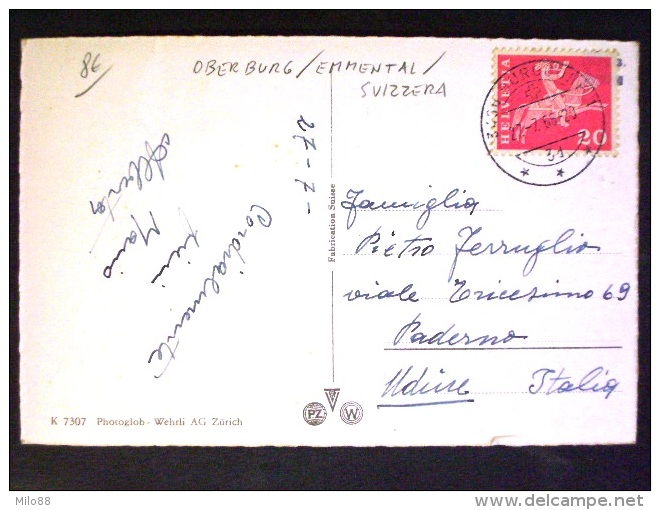 8€
OBERBURG/EMMENTAL/
SVIZZERA
HELVETIA
20
27-7-
Cordialmente
Mario
Fabrication Suisse
Famiglia
Pietro Ferruglio
viale Tricesimo 69
Paderno
Udine Italia
K 7307 Photoglob - Wehrli AG Zürich
PZ
W
Milo88
www.delcampe.net